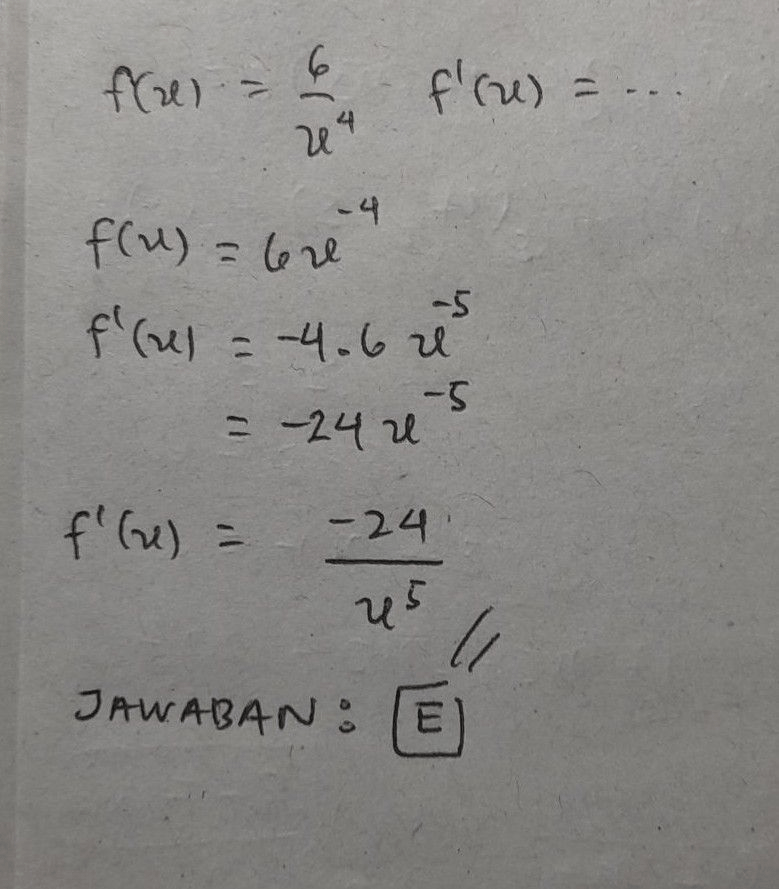 f(x) = 6/x⁴ f'(x) = ...
f(x) = 6x⁻⁴
f'(x) = -4.6 x⁻⁵
= -24x⁻⁵
f'(x) = -24/x⁵ //
JAWABAN : E